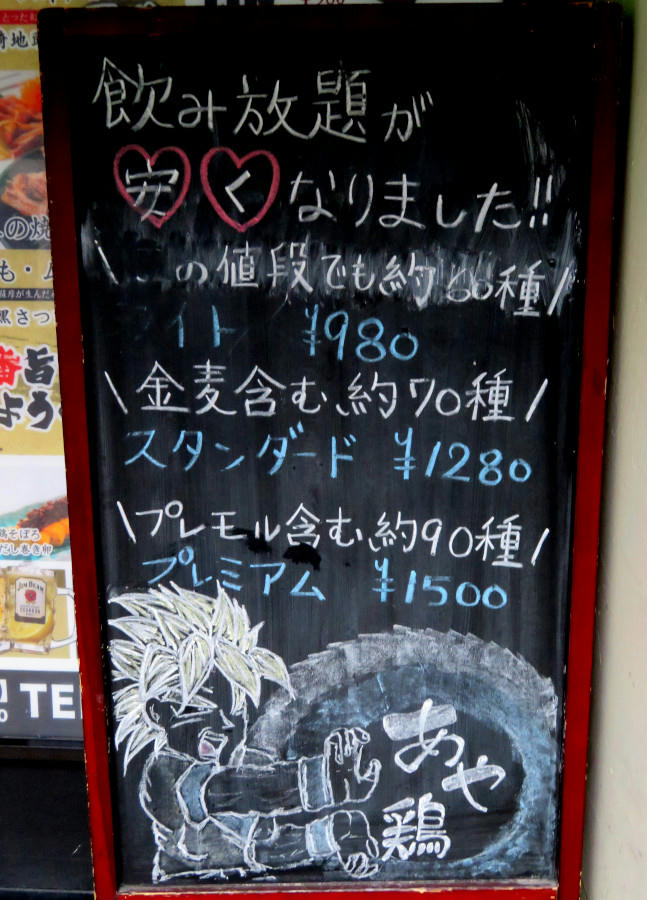 飲み放題が
安くなりました!!
\の値段でも約60種/
イト ¥980
\金麦含む、約70種/
スタンダード ¥1280
\プレモル含む、約90種/
プレミアム ¥1500
あや
鶏
の焼
も・
黒さつ
番旨
よう
鶏そぼろ
だし巻き卵
JIM BEAM
TE